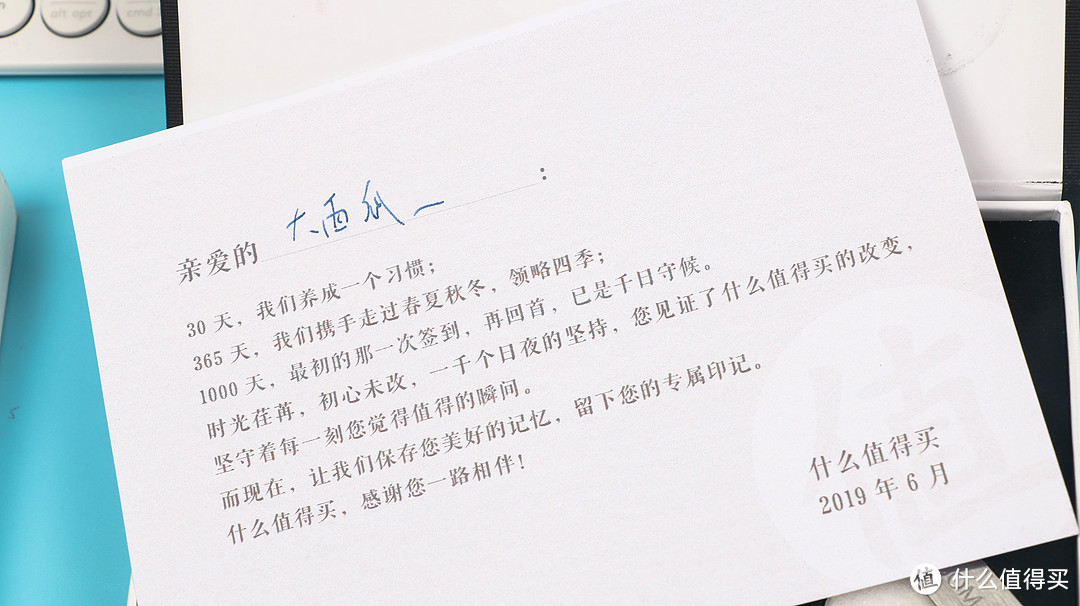 alt opt
cmd
亲爱的 大西瓜_：
30 天，我们养成一个习惯；
365 天，我们携手走过春夏秋冬，领略四季；
1000 天，最初的那一次签到，再回首，已是千日守候。
时光荏苒，初心未改，一千个日夜的坚持，您见证了什么值得买的改变，
坚守着每一刻您觉得值得的瞬间。
而现在，让我们保存您美好的记忆，留下您的专属印记。
什么值得买，感谢您一路相伴！
什么值得买
2019 年 6 月
值
值 什么值得买